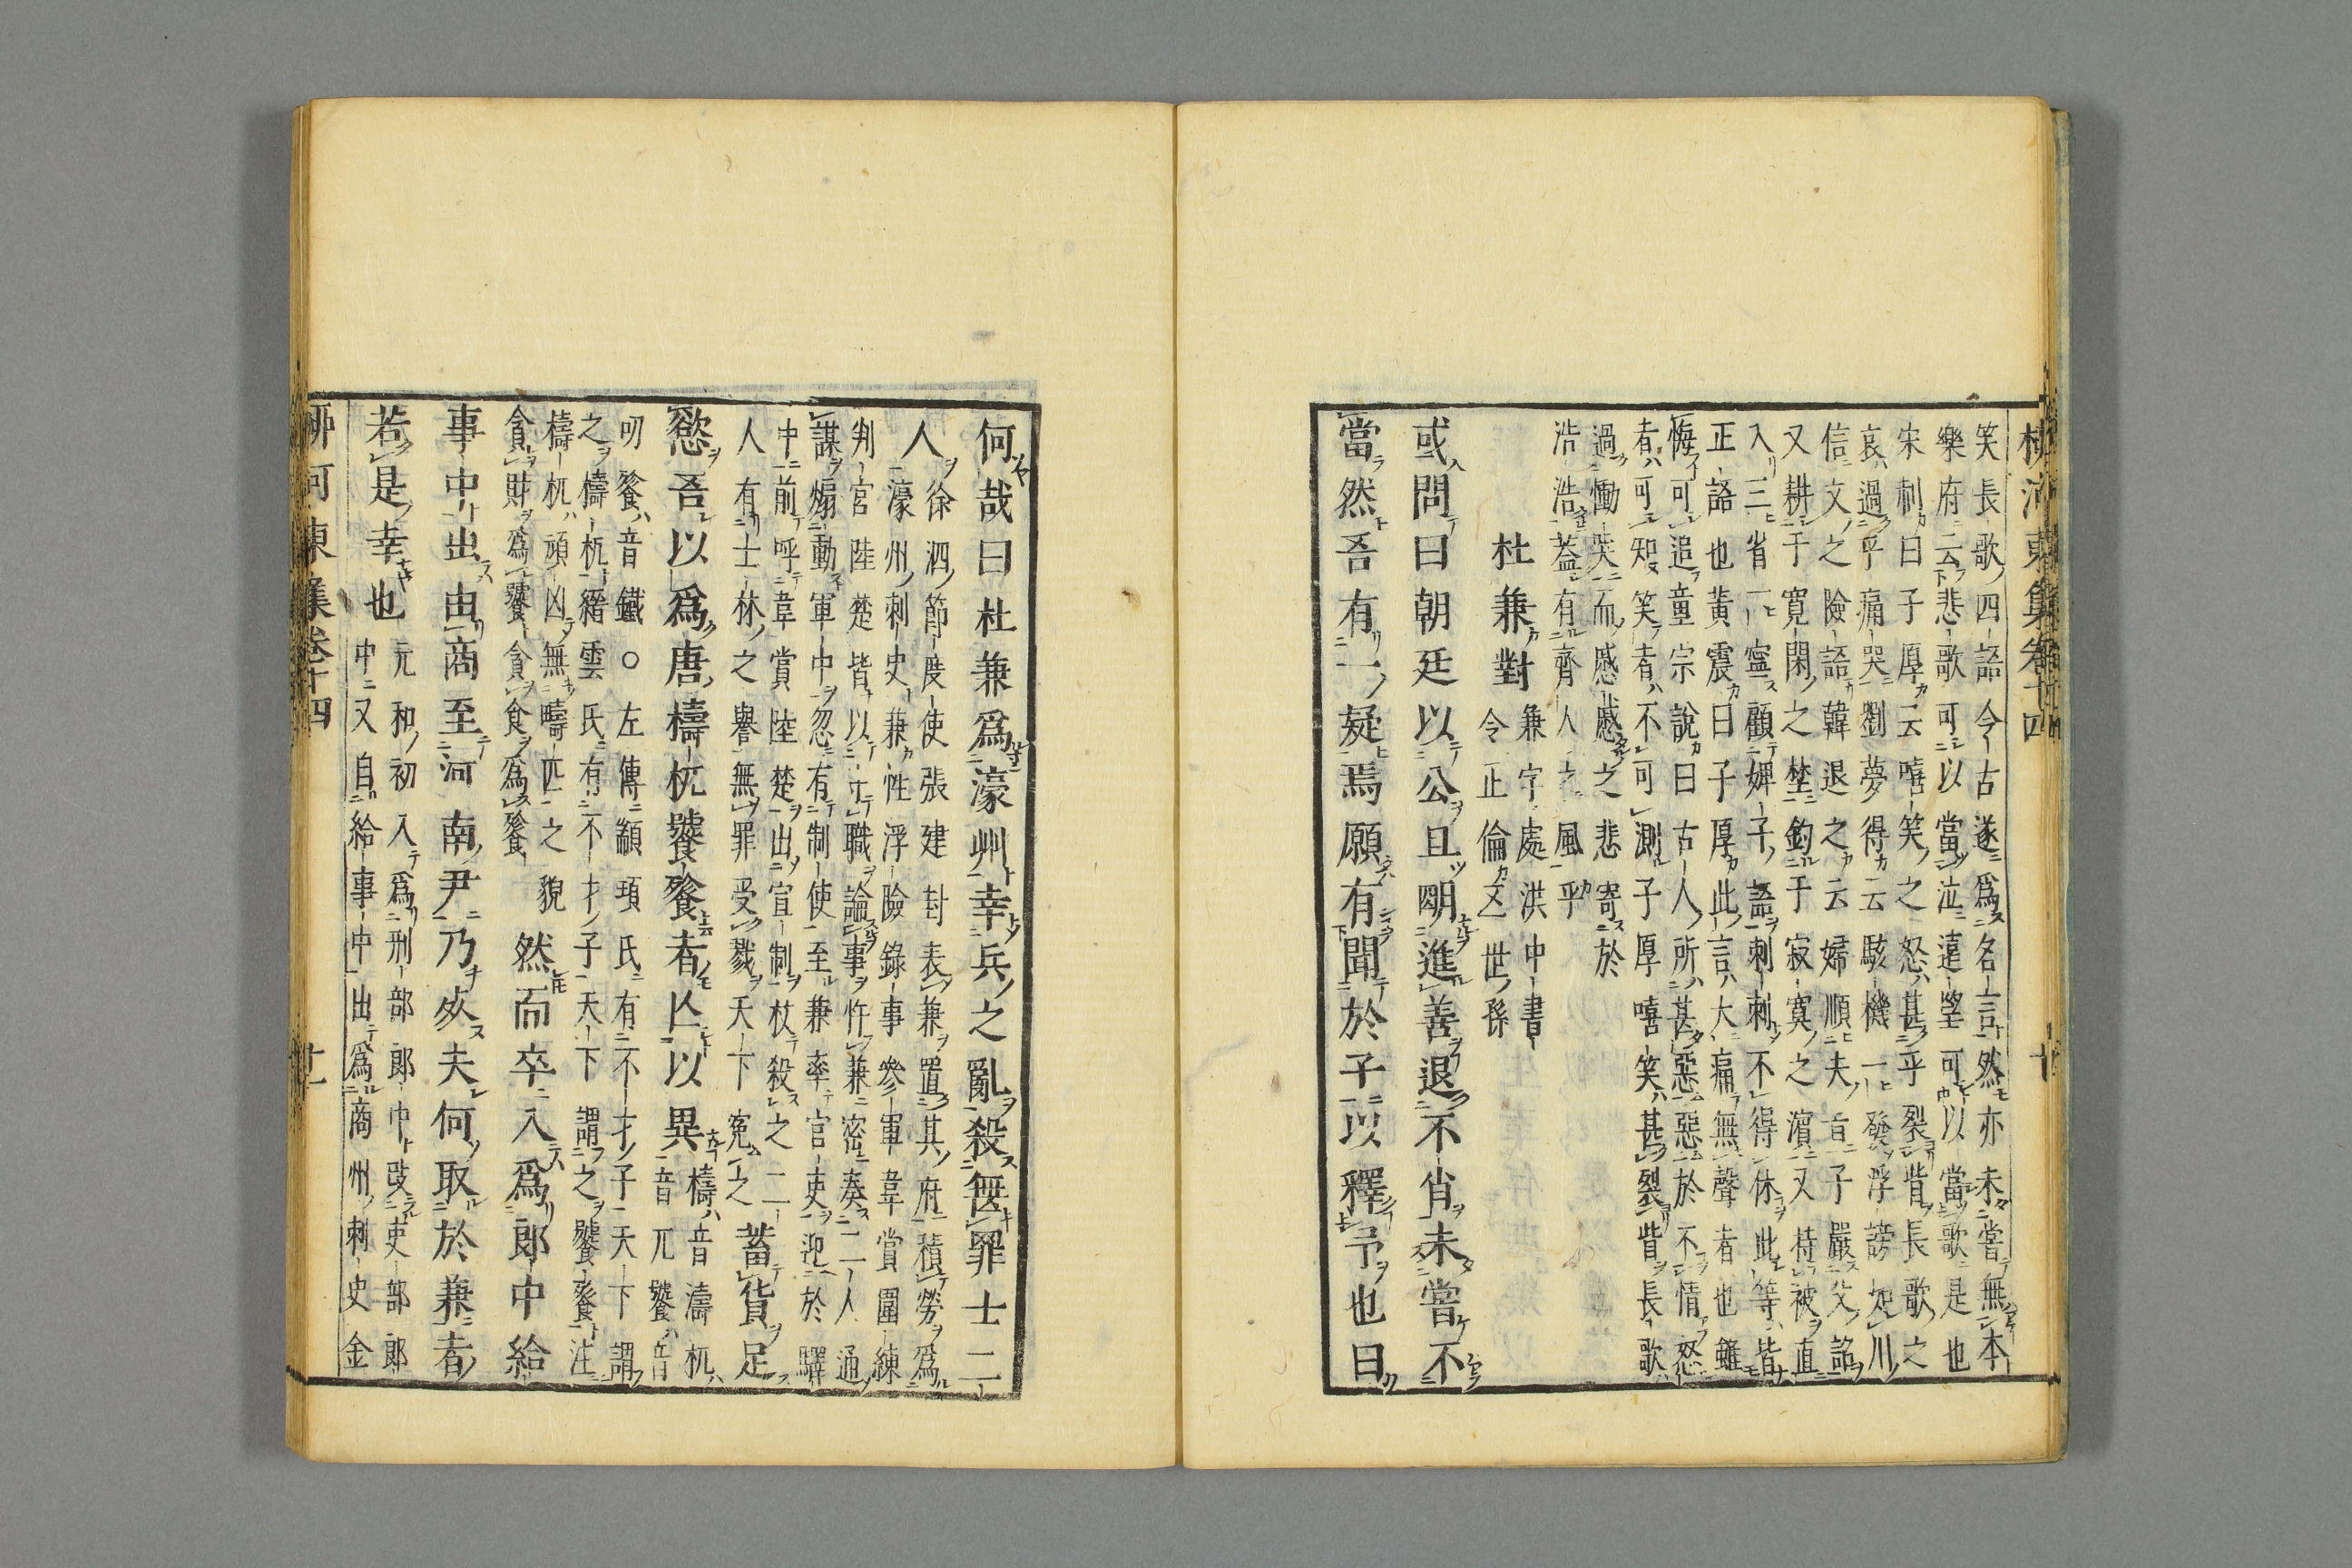 柳河東集卷十四 廿
笑長歌四語今古遂爲名言然亦未嘗無本
樂府云悲歌可以當泣遠望可以當歌是也
宋刺曰子厚云嘻笑之怒甚乎裂眥長歌之
哀過乎痛哭劉夢得云駭機一發浮謗如川
信文之險語韓退之云婦順夫旨子嚴父詔
又耕于寬閑之埜釣于寂寞之濱又持被直
入三省丁寧顧婢子語刺刺不得休此等皆
正語也黃震曰子厚此言大痛無聲者也雖
悔可追童宗說曰古人所甚惡惡於不情怒
者可知笑者不可測子厚嘻笑甚裂眥長歌
過慟哭而慼慼之悲寄於
浩浩蓋有齊人之風乎
杜兼對
兼字處洪中書
令正倫五世孫
或問曰朝廷以公且明進善退不肖未嘗不
當然吾有一疑焉願有聞於子以釋予也曰
何哉曰杜兼爲濠州幸兵之亂殺無罪士二
人
徐泗節度使張建封表兼置其府積勞爲
濠州刺史兼性浮險錄事參軍韋賞團練
判官陸楚皆以守職論事忤兼密奏二人通
謀煽動軍中忽有制使至兼率官吏迎於驛
中前呼韋賞陸楚出宣制杖殺之二
人有士林之譽無罪受戮天下冤之
蓄貨足
慾吾以爲唐檮杌饕餮者亾以異
檮音濤杌
音兀饕音
叨餮音鐵○左傳顓頊氏有不才子天下謂
之檮杌縉雲氏有不才子天下謂之饕餮注
檮杌頑凶無疇匹之貌
貪財爲饕貪食爲餮
然而卒入爲郎中給
事中出由商至河南尹乃死夫何取於兼者
若是幸也
元和初入爲刑部郎中改吏部郎
中又自給事中出爲商州刺史金
柳河東集卷十四 廿一